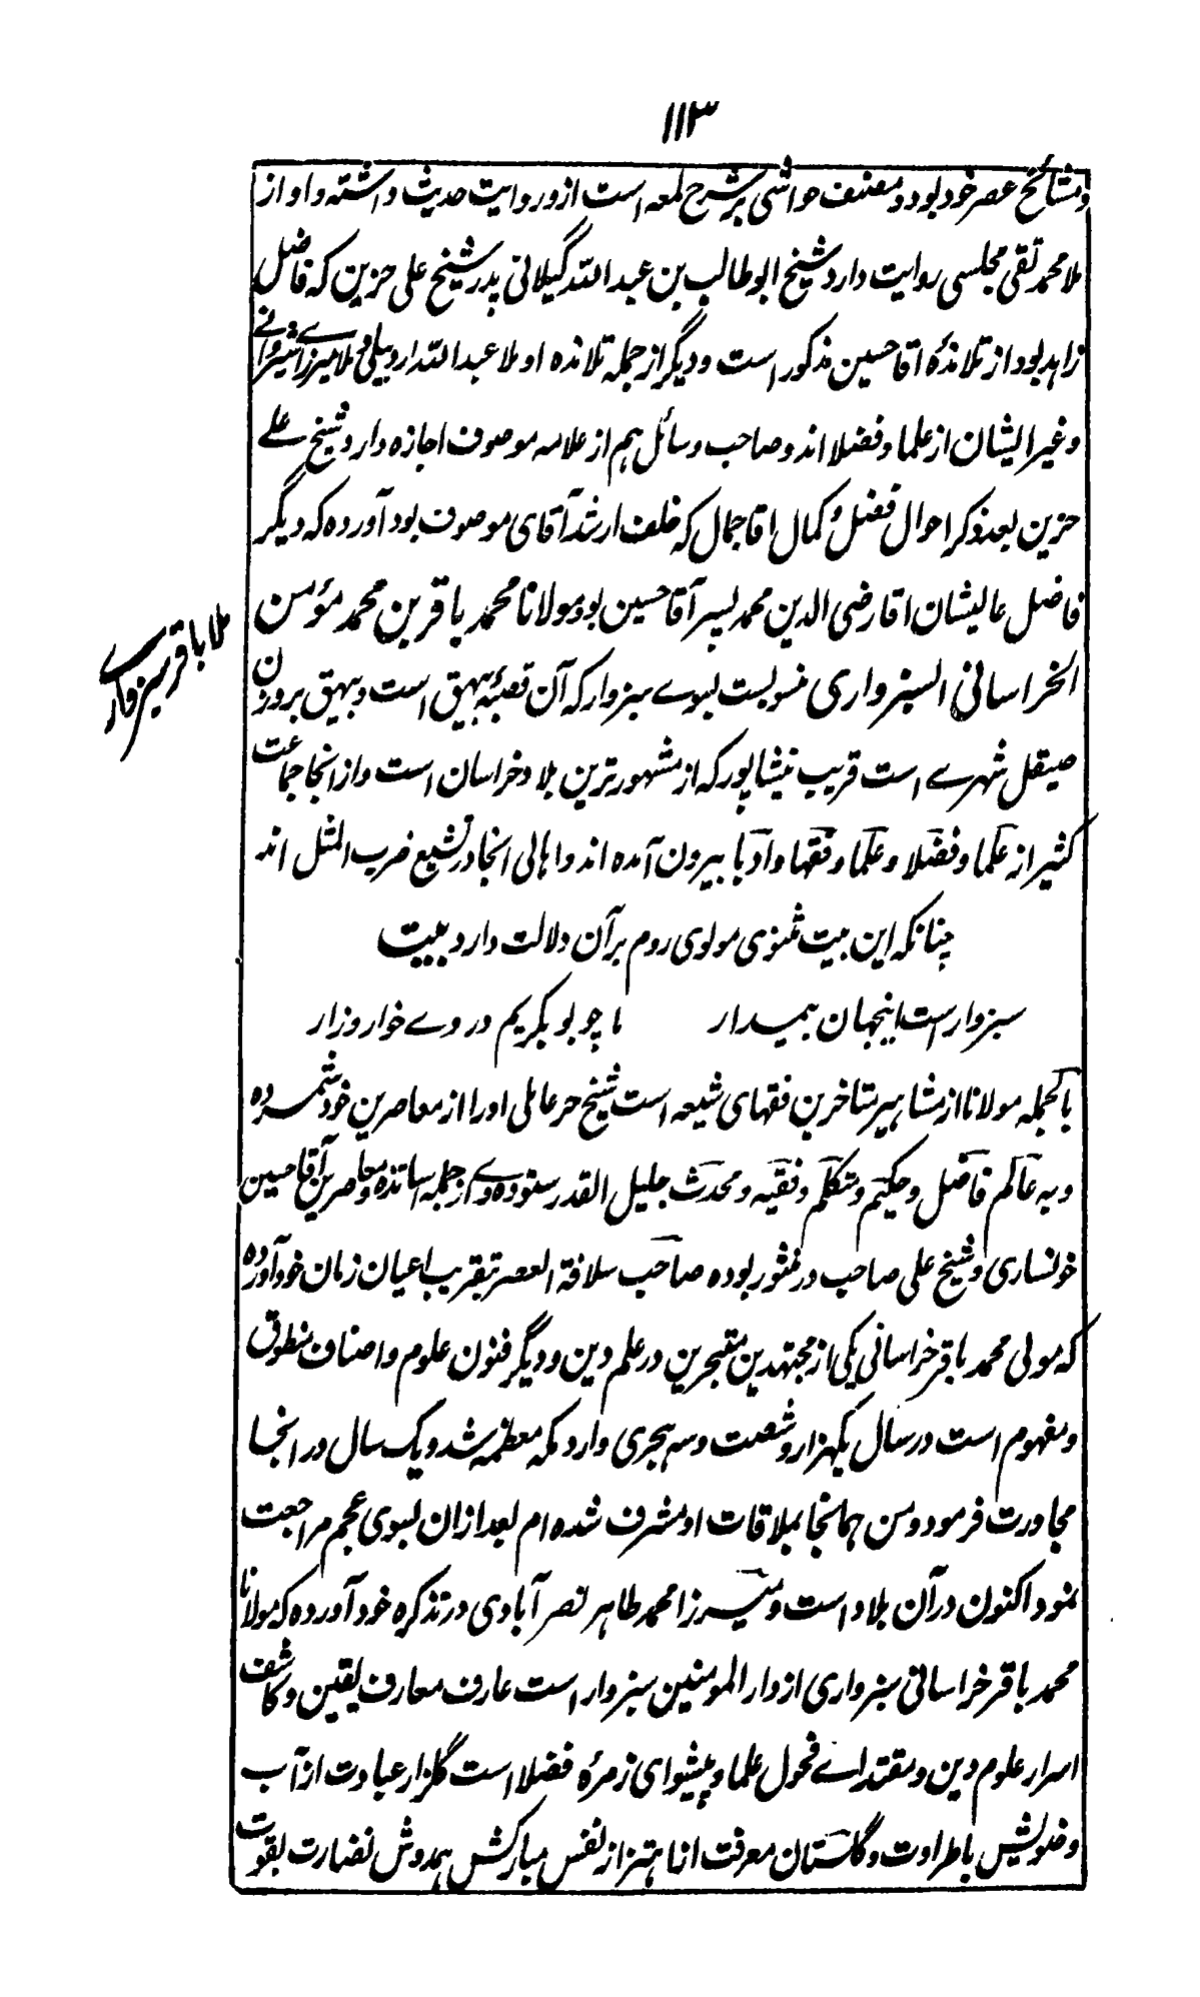 ۱۱۳
ومشائخ عصر خود بود و مصنف حواشی بر شرح لمعه است ازو روایت حدیث داشته و او از
ملا محمد تقی مجلسی روایت دارد شیخ ابو طالب بن عبد الله گیلانی پدر شیخ علی حزین که فاضل
زاهد بود از تلامذهٔ آقا حسین مذکور است و دیگر از جمله تلامذه او ملا عبد الله اردبیلی و ملا میرزاے شیروانے
و غیر ایشان از علما و فضلا اند و صاحب وسائل هم از علامه موصوف اجازه دارد شیخ علے
حزین بعد ذکر احوال فضل و کمال اقا جمال که خلف ارشد آقای موصوف بود آورده که دیگر
فاضل عالیشان اقا رضی الدین محمد پسر آقا حسین بود مولانا محمد باقر بن محمد مؤمن
الخراسانی السبزواری منسوبست بسوے سبزوار که آن قصبهٔ بیهق است و بیهق بروزن
صیقل شهرے است قریب نیشاپور که از مشهورترین بلاد خراسان است و از انجا جماعت
کثیر از علما و فضلا و حکما و فقها و ادبا بیرون آمده اند و اهالی انجا در تشیع ضرب المثل اند
چنانکه این بیت مثنوی مولوی روم بر آن دلالت دارد بیت
سبزوار است اینجهان بیمدار ما چو بوبکریم در وے خوار و زار
بالجمله مولانا از مشاهیر متاخرین فقهای شیعه است شیخ حر عاملی او را از معاصرین خود شمرده
و به عالم فاضل و حکیم و متکلم و فقیه و محدث جلیل القدر ستوده وے از جمله اساتذه و معاصرین آقا حسین
خونساری و شیخ علی صاحب در منثور بوده صاحب سلافة العصر بتقریب اعیان زمان خود آورده
که مولی محمد باقر خراسانی یکی از مجتهدین متبحرین در علم دین و دیگر فنون علوم و اصناف منطوق
و مفهوم است در سال یکهزار و شصت و سه هجری وارد مکه معظمه شد و یک سال در انجا
مجاورت فرمود و من همانجا بملاقات او مشرف شده ام بعد ازان بسوی عجم مراجعت
نمود اکنون در آن بلاد است و میرزا محمد طاهر نصر آبادی در تذکره خود آورده که مولانا
محمد باقر خراسانی سبزواری از دار المومنین سبزوار است عارف معارف یقین و کاشف
اسرار علوم دین و مقتداے فحول علما و پیشوای زمرهٔ فضلا است گلزار عبادت از آب
وضویش باطراوت و گلستان معرفت از اهتزاز نفس مبارکش همدوش نضارت بقوت
ملا باقر سبزوارے